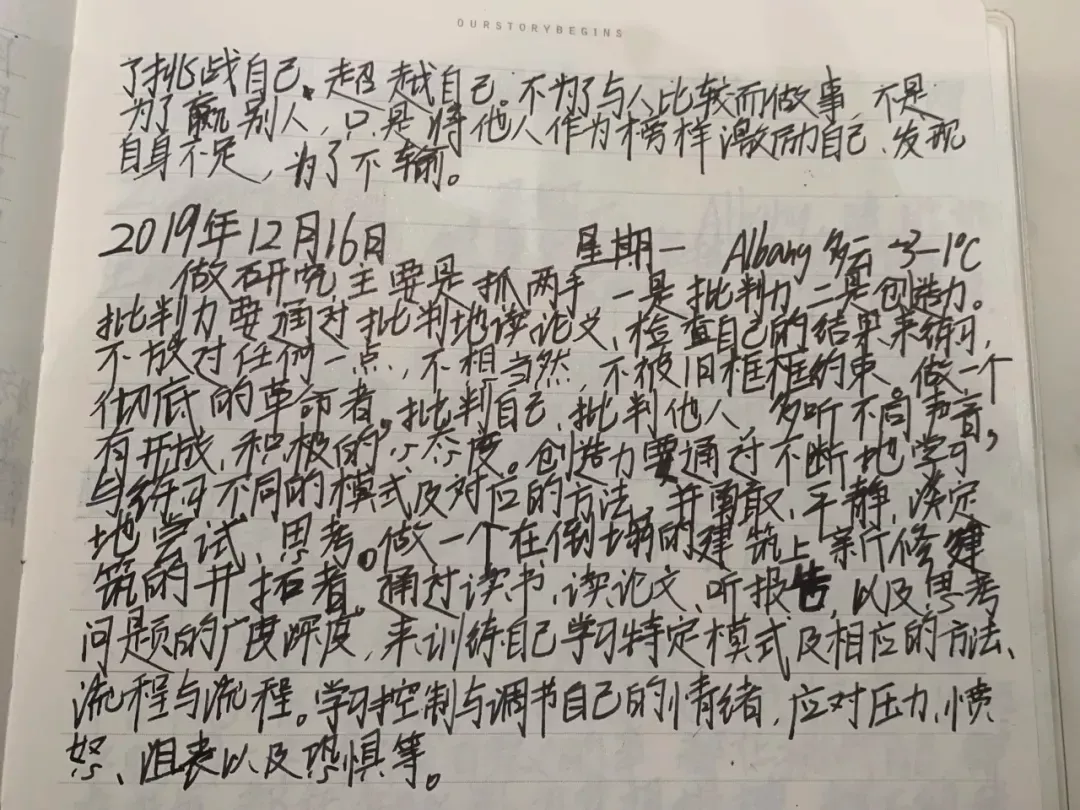 OURSTORYBEGINS
了挑战自己、超越自己。不为了与人比较而做事,不是
为了赢别人,只是将他人作为榜样激励自己、发现
自身不足,为了不输。
2019年12月16日 星期一 Albany 多云 -3-1℃
做研究主要是抓两手,一是批判力,二是创造力。
批判力要通过批判地读论文、检查自己的结果来练习,
不放过任何一点,不想当然,不被旧框框约束。做一个
彻底的革命者。批判自己,批判他人,多听不同声音,
有开放、积极的心态度。创造力要通过不断地学习,
与练习不同的模式及对应的方法,并勇敢、平静、淡定
地尝试、思考。做一个在倒塌的建筑上新修建
筑的开拓者。通过读书、读论文、听报告,以及思考
问题的广度深度,来训练自己学习特定模式及相应的方法、
流程与流程。学习控制与调节自己的情绪,应对压力、愤
怒、沮丧以及恐惧等。